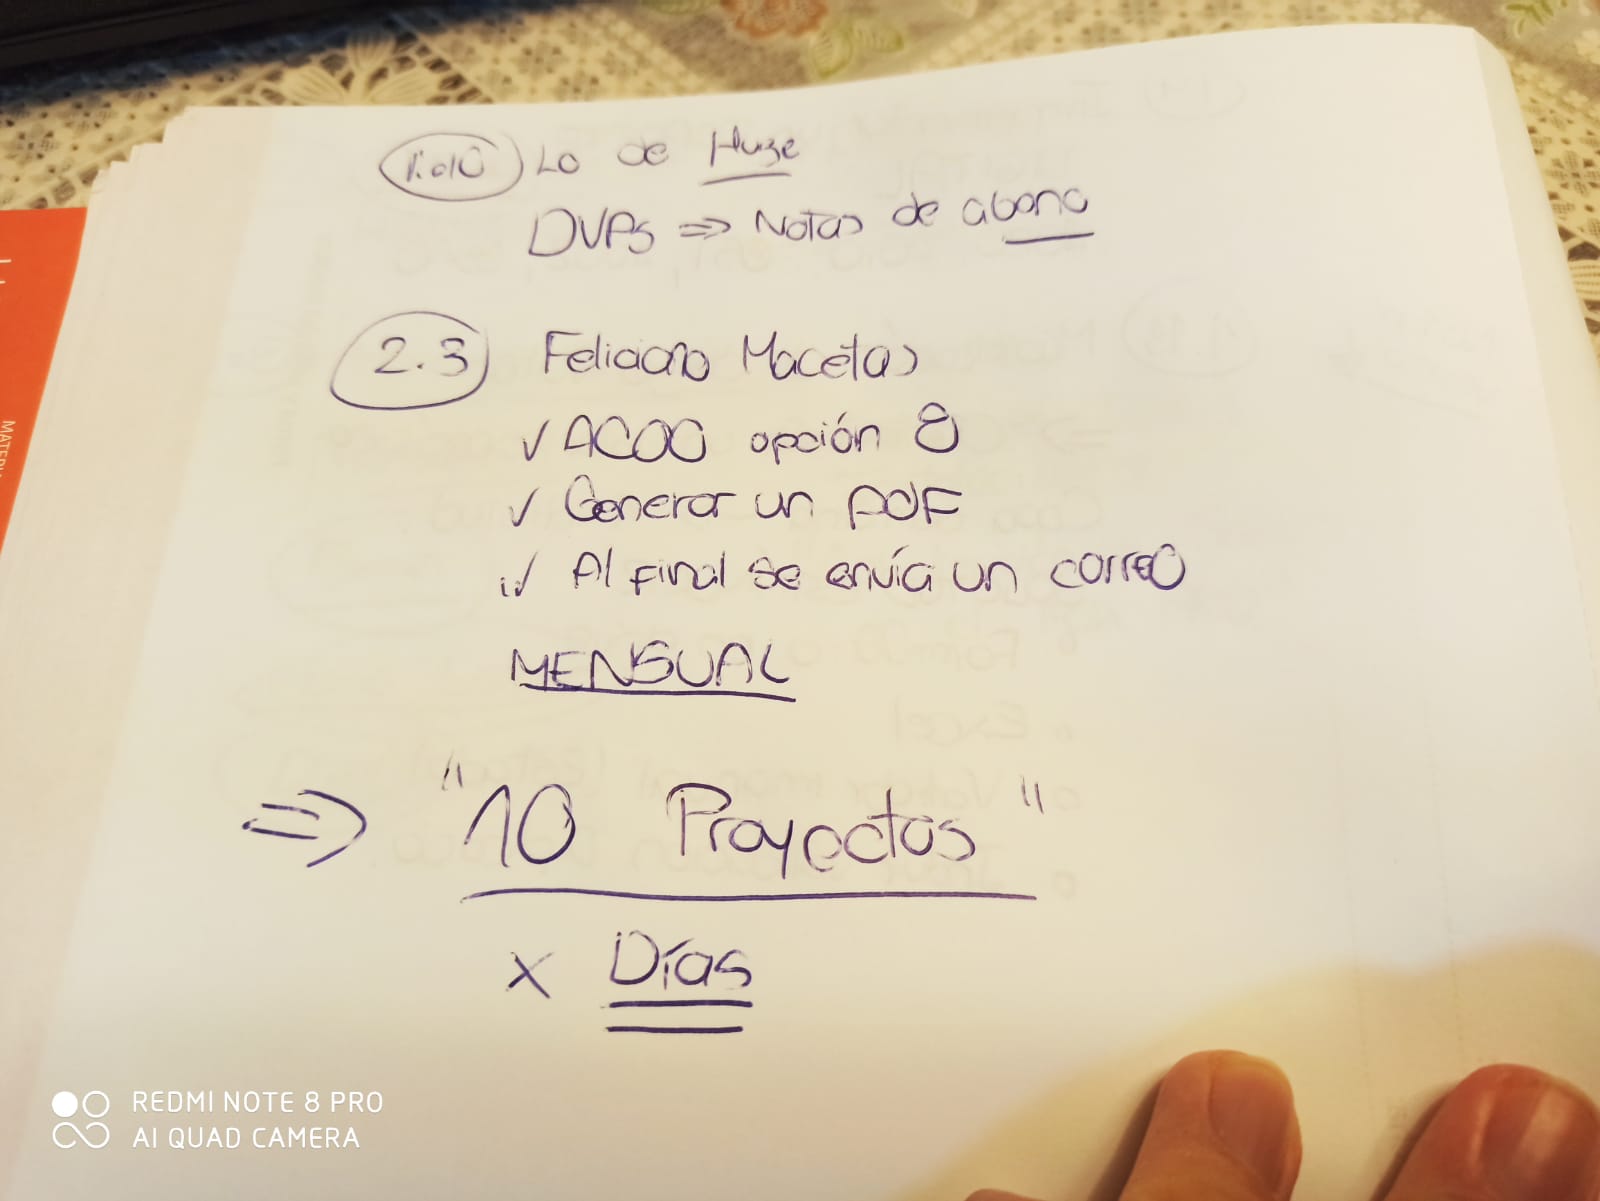 1.010 Lo de Huge
DVPS ⇒ Notas de abono
2.3 Feliciano Macetas
✓ ACOO opción 8
✓ Generar un PDF
✓ Al final se envía un correo
MENSUAL
⇒ "10 Proyectos"
x Días
REDMI NOTE 8 PRO
AI QUAD CAMERA